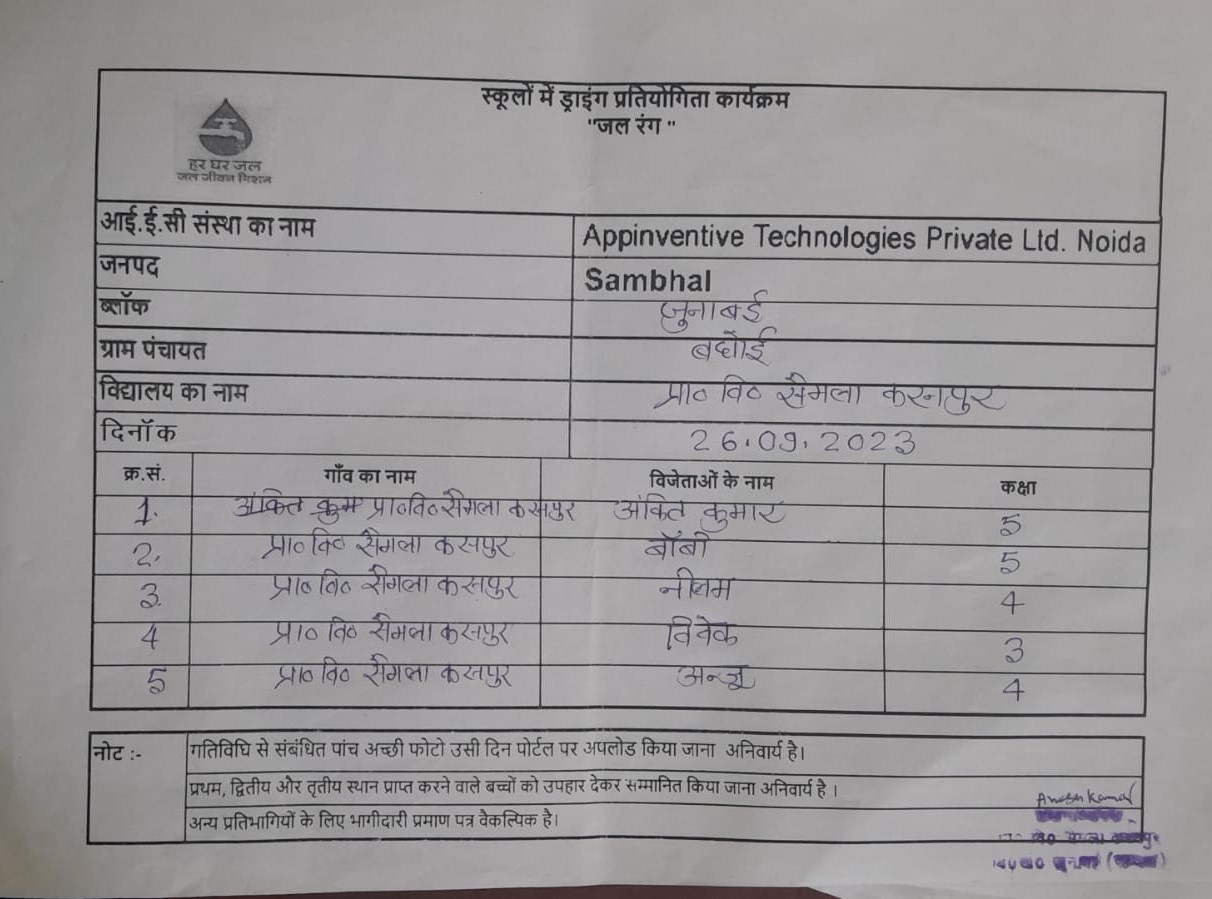 स्कूलों में ड्राइंग प्रतियोगिता कार्यक्रम
"जल रंग "
हर घर जल
जल जीवन मिशन
आई.ई.सी संस्था का नाम Appinventive Technologies Private Ltd. Noida
जनपद Sambhal
ब्लॉक जुनाबई
ग्राम पंचायत बघोई
विद्यालय का नाम प्रा० वि० सैमला करनपुर
दिनॉक 26.09.2023
क्र.सं. गाँव का नाम विजेताओं के नाम कक्षा
1. प्रा० वि० सैमला अंकित कुमार 5
2. प्रा० वि० सैमला बॉबी 5
3. प्रा० वि० सैमला नीलम 4
4 प्रा० वि० सैमला विवेक 3
5 प्रा० वि० सैमला अन्जू 4
नोट :- गतिविधि से संबंधित पांच अच्छी फोटो उसी दिन पोर्टल पर अपलोड किया जाना अनिवार्य है।
प्रथम, द्वितीय और तृतीय स्थान प्राप्त करने वाले बच्चों को उपहार देकर सम्मानित किया जाना अनिवार्य है ।
अन्य प्रतिभागियों के लिए भागीदारी प्रमाण पत्र वैकल्पिक है।